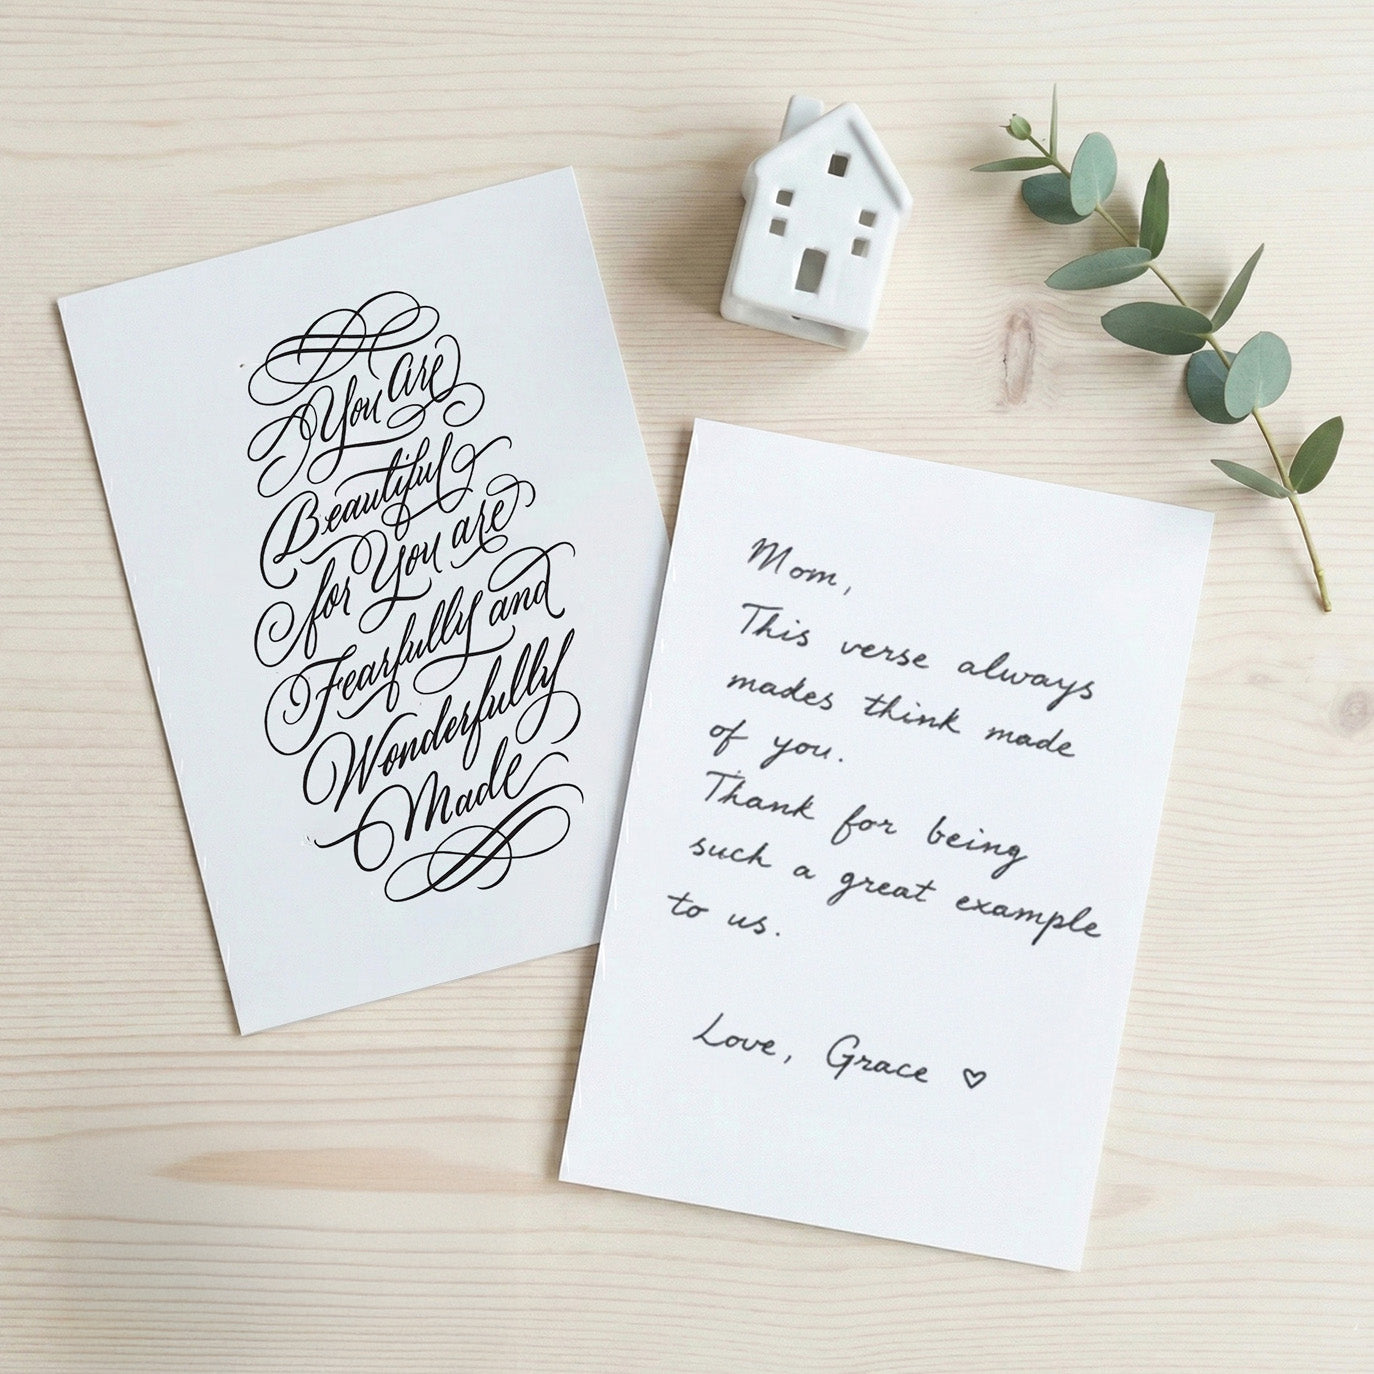 You Are
Beautiful
for You are
Fearfully and
Wonderfully
Made
Mom,
This verse always
mades think made
of you.
Thank for being
such a great example
to us.
Love, Grace ♡